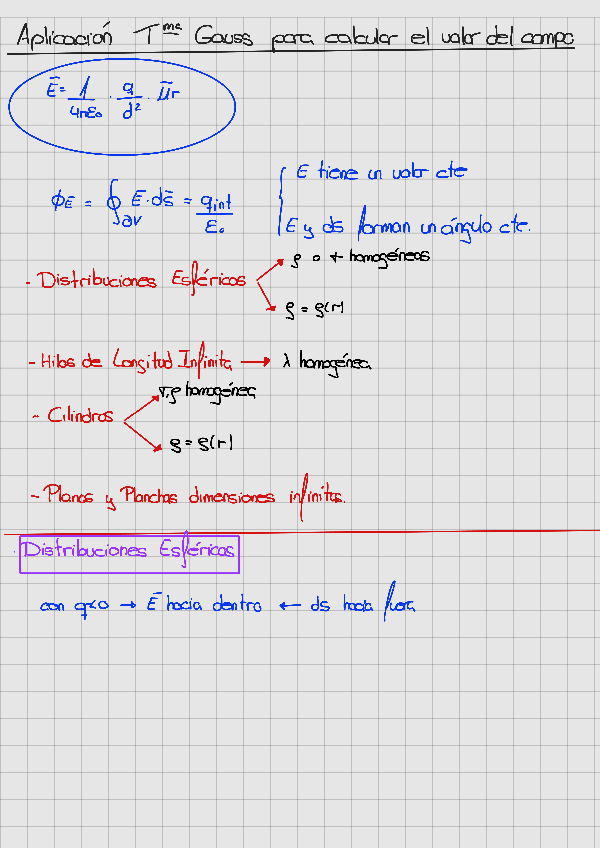 Aplicación Tma Gauss para calcular el valor del campo
Ē = 1/4πε₀ · q/d² · ūr
ϕE = ∮∂V Ē·ds̄ = qint/ε₀
E tiene un valor cte
E y ds forman un ángulo cte.
- Distribuciones Esféricas
homogéneas
ρ = ρ(r)
- Hilos de Longitud Infinita → λ homogénea
σ,ρ homogénea
- Cilindros
ρ = ρ(r)
- Planos y Planchas dimensiones infinitas.
Distribuciones Esféricas
con q<0 → Ē hacia dentro ← ds hacia fuera